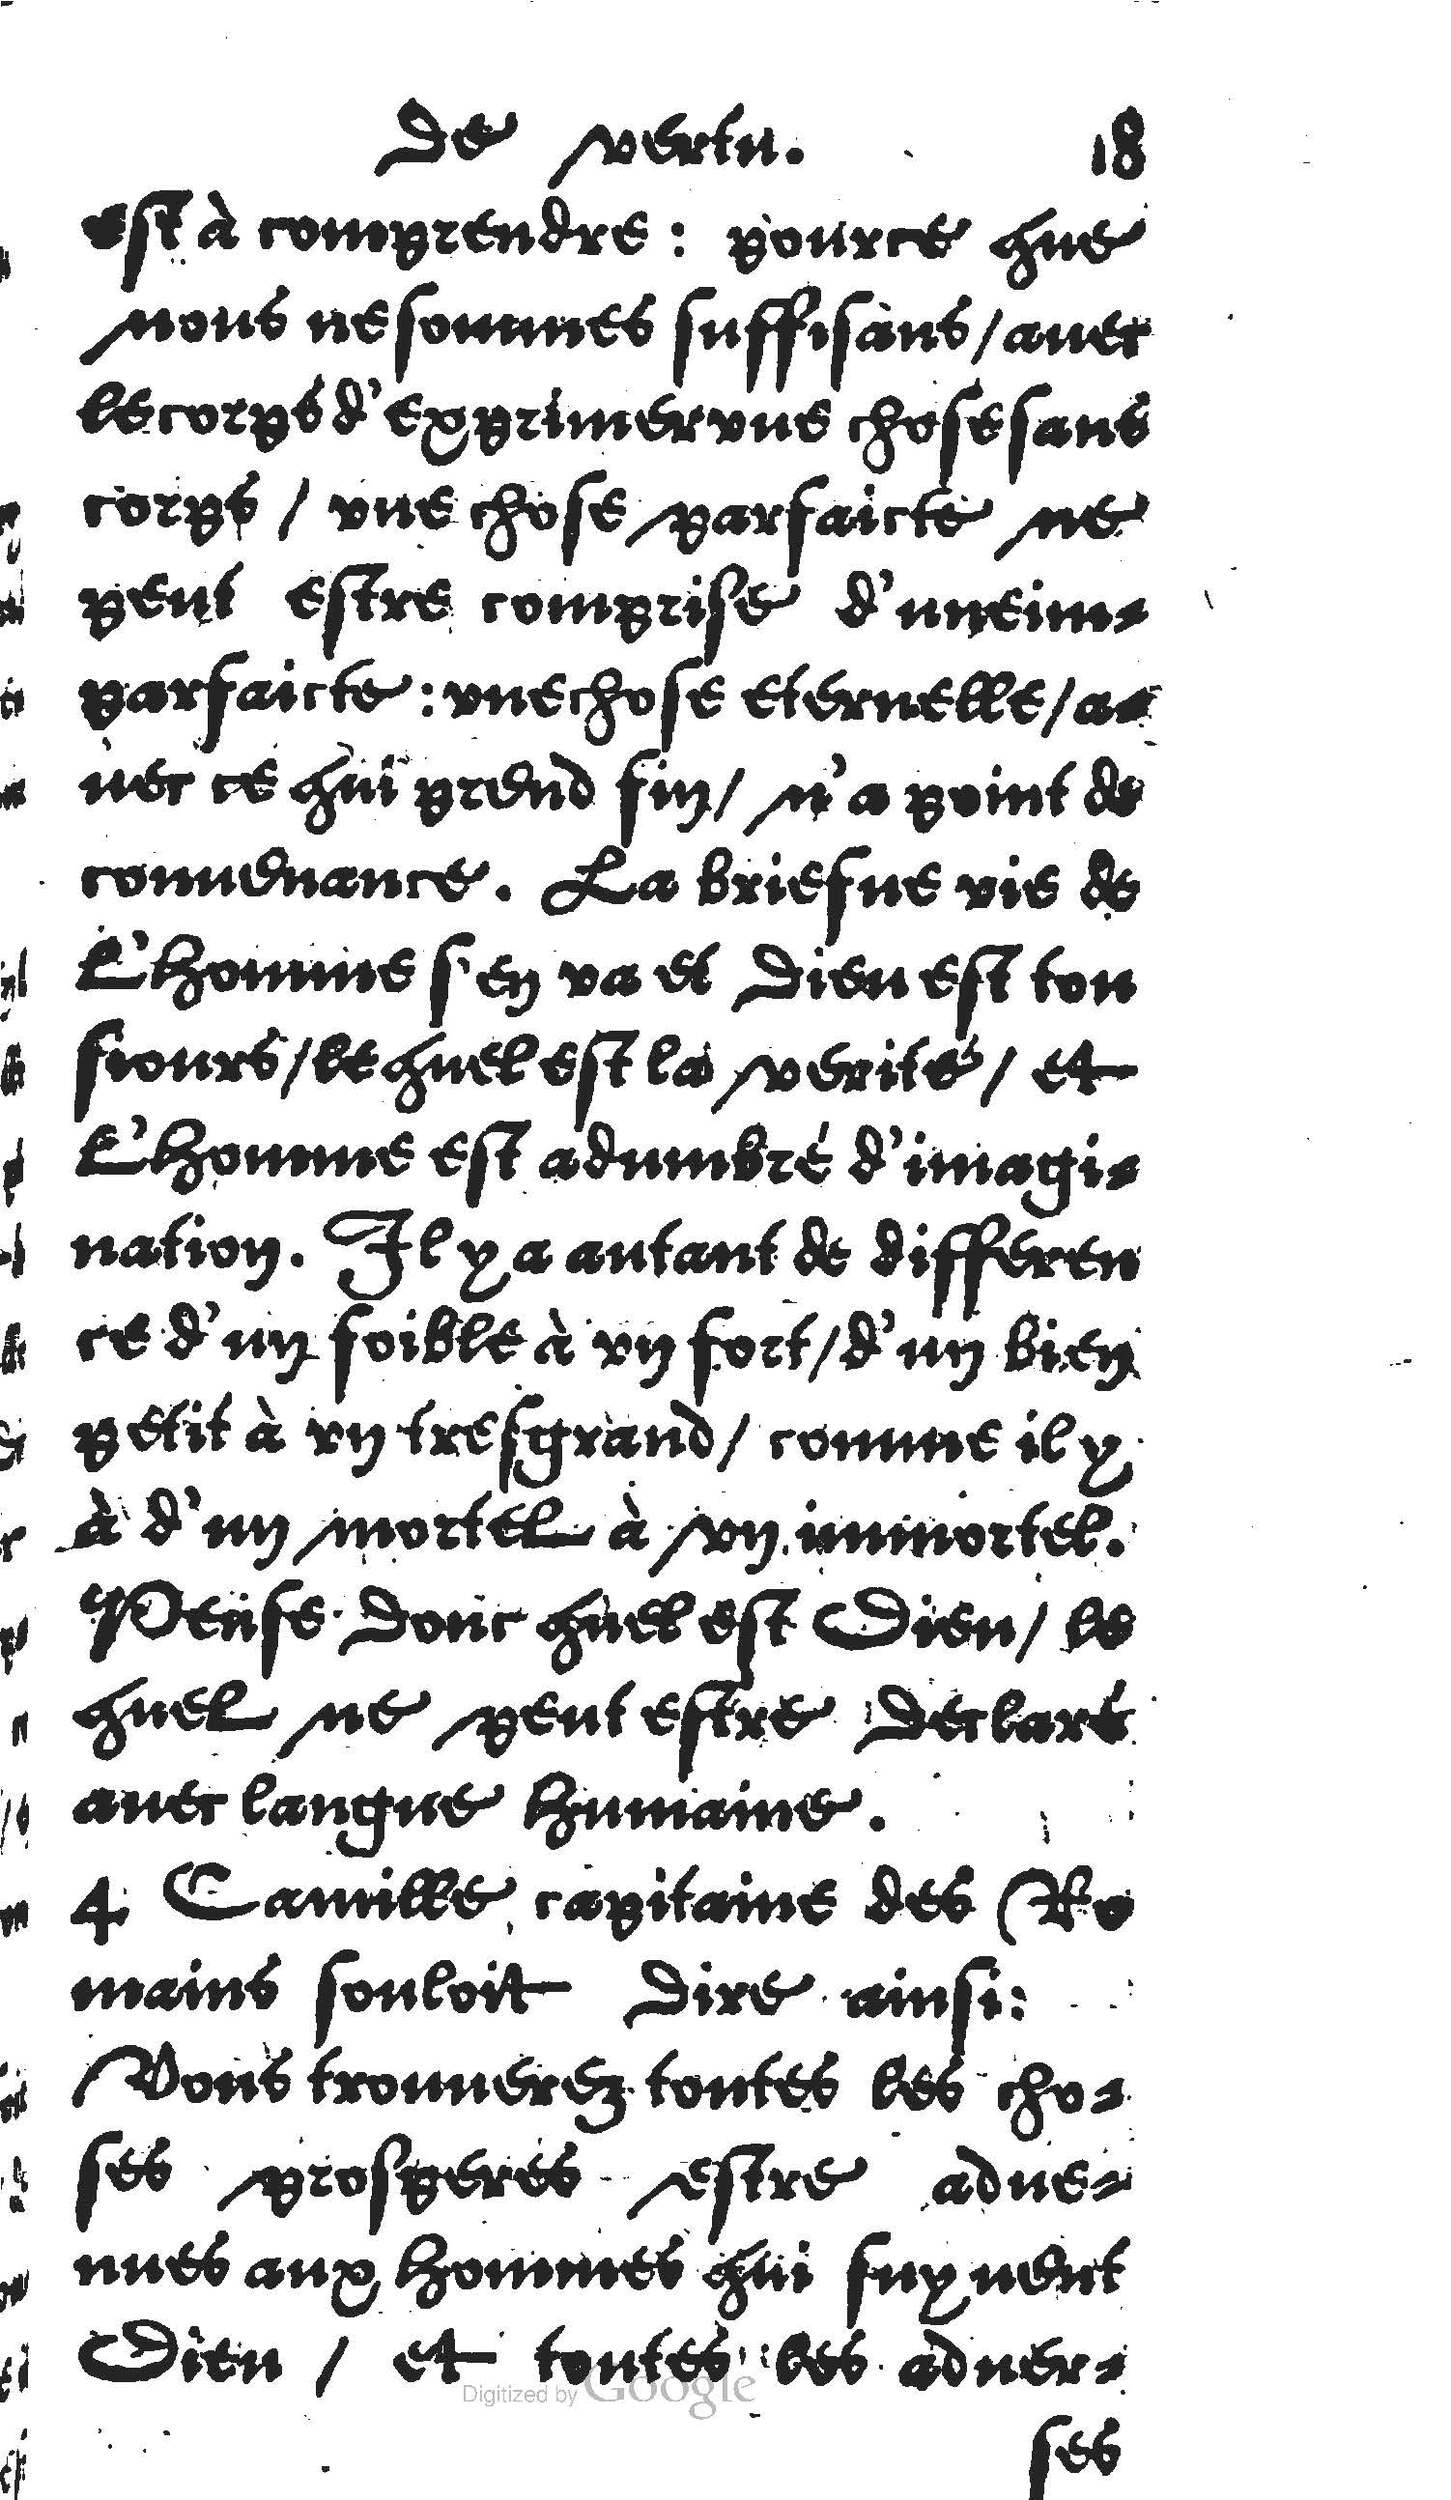 De vertu. 18
est à comprendre : pource que
nous ne sommes suffisans / auec
le corps d'exprimer vne chose sans
corps / vne chose parfaicte ne
peut estre comprise d'vne im-
parfaicte : vne chose eternelle / a-
uec ce qui prend fin / n'a point de
conuenance. La briefue vie de
l'homme s'en va et Dieu est tou
siours / lequel est la verité / et
l'homme est adumbré d'imagi-
nation. Il y a autant de differen
ce d'un foible à vn fort / d'un bien
petit à vn tresgrand / comme il y
à d'un mortel à vn immortel.
Pense donc quel est Dieu / le
quel ne peut estre declaré
auec langue humaine.
4 Camille capitaine des Ro
mains souloit dire ainsi:
Vous trouuerez toutes les cho-
ses prosperes estre adue-
nues aux hommes qui suyuent
Dieu / et toutes les aduer-
ses
Digitized by Google